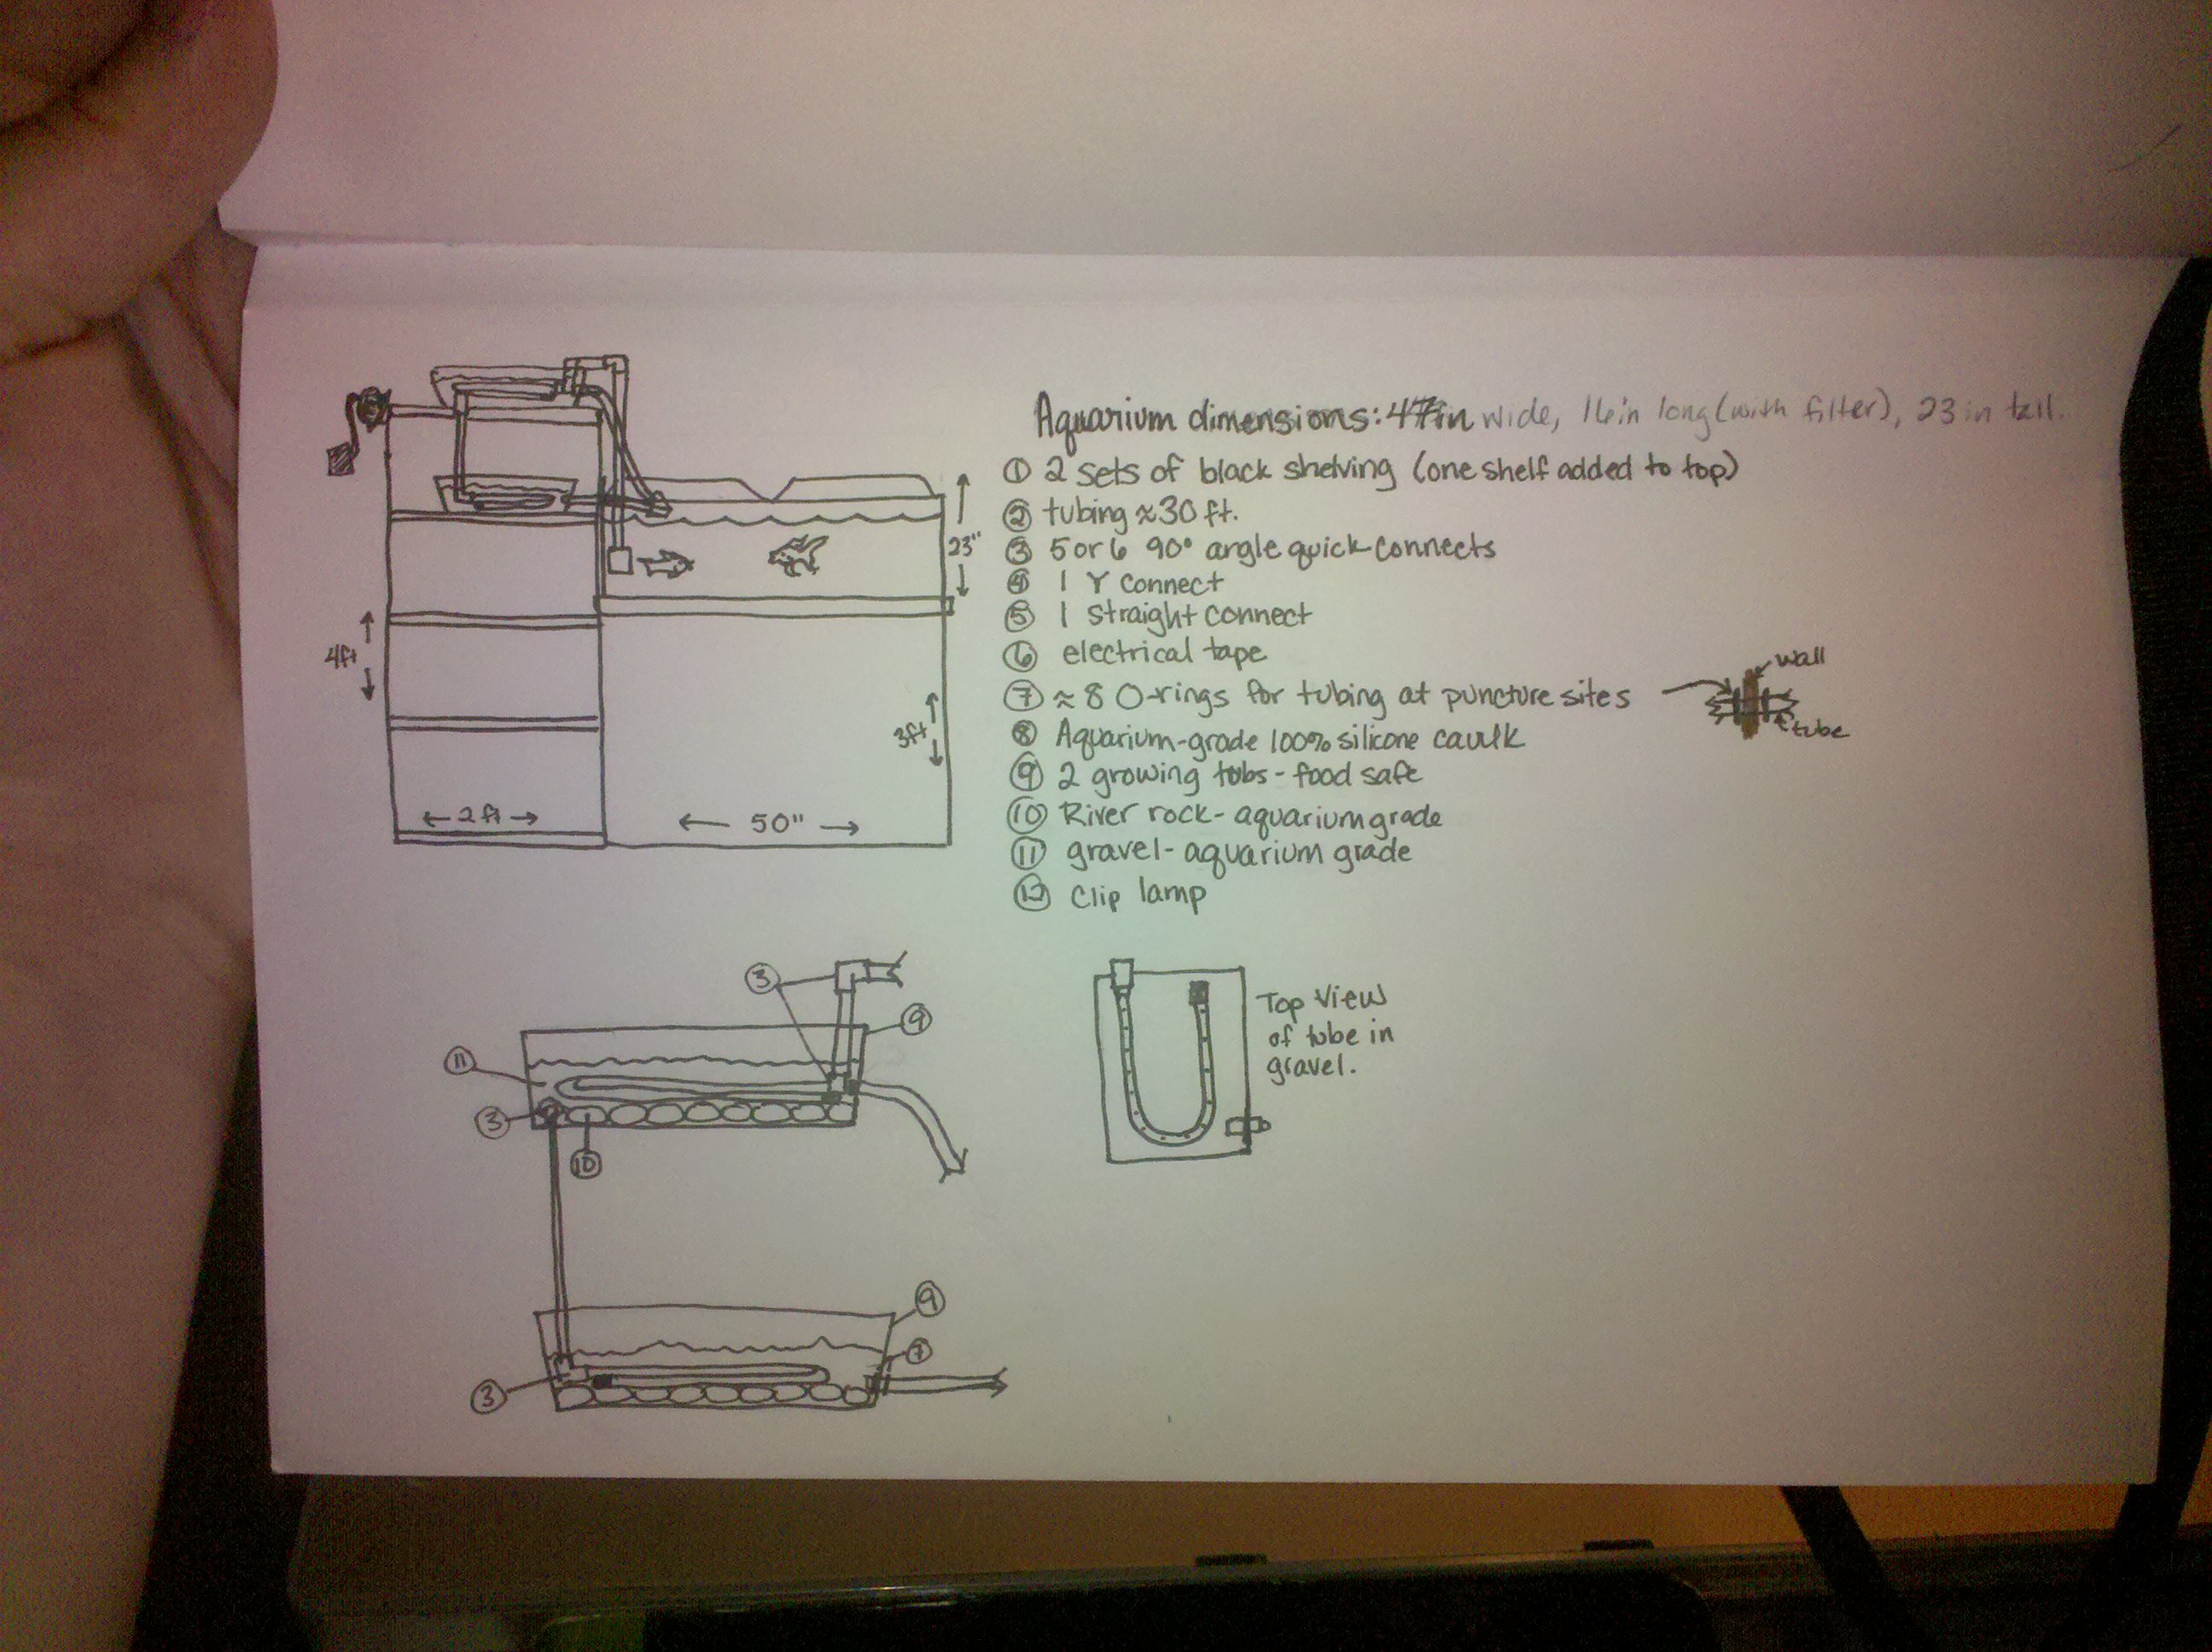 Aquarium dimensions: 47in wide, 16in long (with filter), 23 in tall.
① 2 sets of black shelving (one shelf added to top)
② tubing ≈30 ft.
③ 5 or 6 90° angle quick connects
④ 1 Y connect
⑤ 1 straight connect
⑥ electrical tape
⑦ ≈ 8 O-rings for tubing at puncture sites
wall
tube
⑧ Aquarium-grade 100% silicone caulk
⑨ 2 growing tubs - food safe
⑩ River rock - aquarium grade
⑪ gravel - aquarium grade
⑫ Clip lamp
23"
4ft
3ft
2ft
50"
③
⑨
⑪
③
⑩
Top View
of tube in
gravel.
⑨
⑦
③